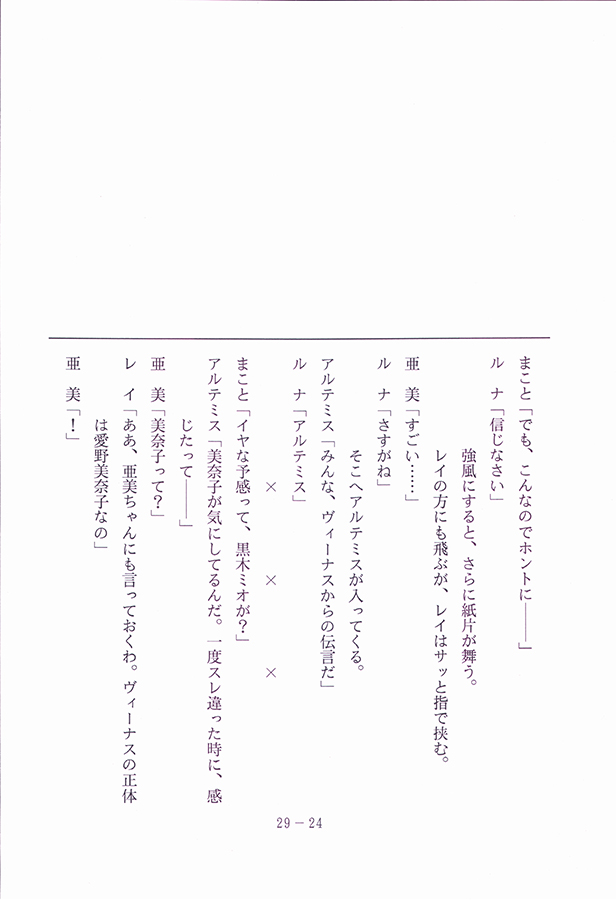 まこと「でも、こんなのでホントに――」
ルナ「信じなさい」
強風にすると、さらに紙片が舞う。
レイの方にも飛ぶが、レイはサッと指で挟む。
亜美「すごい……」
ルナ「さすがね」
そこへアルテミスが入ってくる。
アルテミス「みんな、ヴィーナスからの伝言だ」
ルナ「アルテミス」
× × ×
まこと「イヤな予感って、黒木ミオが?」
アルテミス「美奈子が気にしてるんだ。一度スレ違った時に、感
じたって――」
亜美「美奈子って?」
レイ「ああ、亜美ちゃんにも言っておくわ。ヴィーナスの正体
は愛野美奈子なの」
亜美「!」
29-24